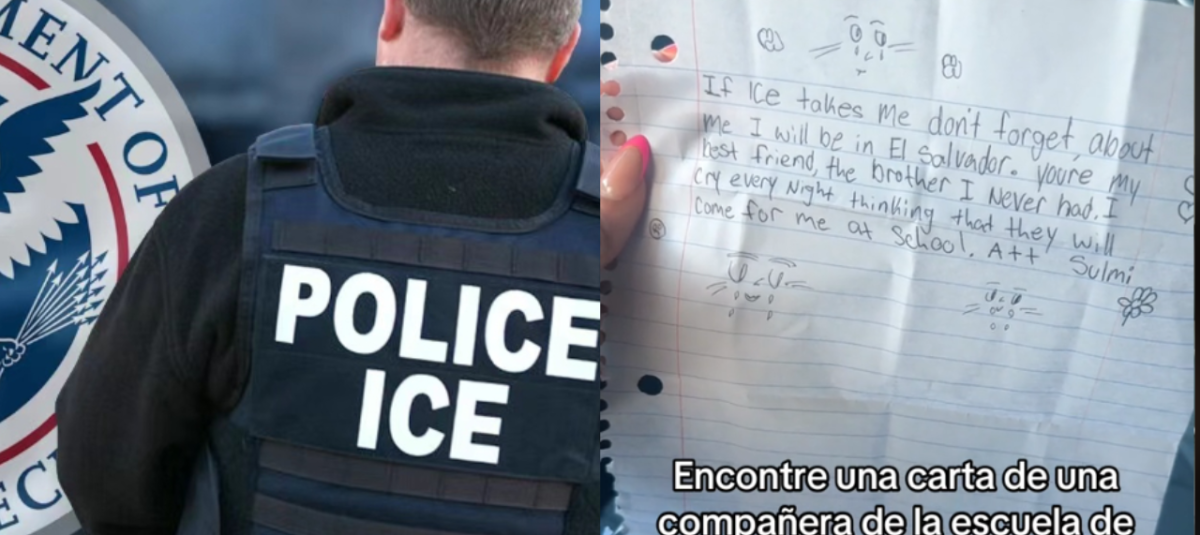 MENT OF
SEC
POLICE
ICE
If ICE takes me don't forget about
me I will be in El Salvador. youre my
best friend, the brother I Never had. I
cry every Night thinking that they will
come for me at School. A++ Sulmi
Encontre una carta de una
compañera de la escuela de